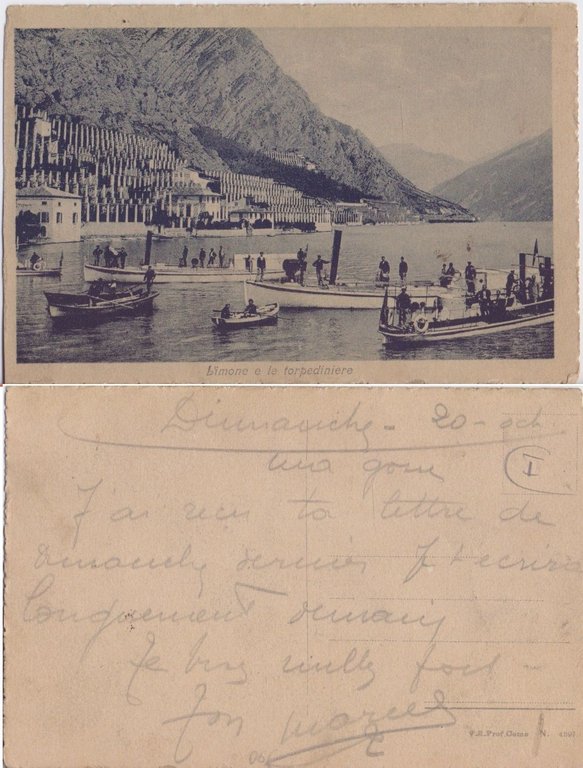 Limone e le torpediniere
Dimanche - 20 - oct
I
ma gosse
J'ai reçu ta lettre de
dimanche dernier J t'écrirai
longuement demain
Je bise mille fois -
Ton Marcel
N. 4597